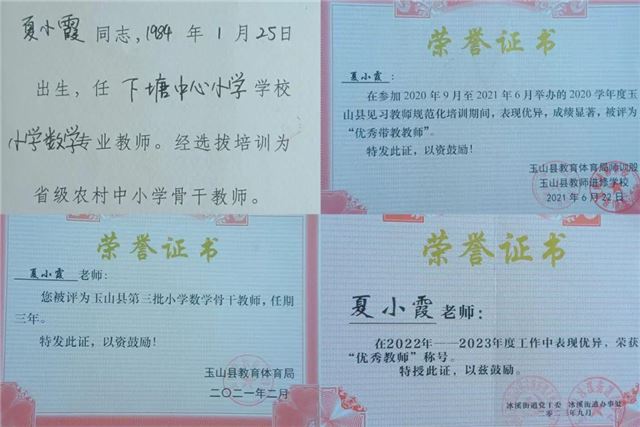 夏小霞同志，1984年1月25日
出生，任下塘中心小学学校
小学数学专业教师。经选拔培训为
省级农村中小学骨干教师。
荣誉证书
夏小霞：
在参加2020年9月至2021年6月举办的2020学年度玉
山县见习教师规范化培训期间，表现优异，成绩显著，被评为
“优秀带教教师”。
特发此证，以资鼓励！
玉山县教育体育局师训股
玉山县教师进修学校
2021年6月22日
荣誉证书
夏小霞老师：
您被评为玉山县第三批小学数学骨干教师，任期
三年。
特发此证，以资鼓励！
玉山县教育体育局
二〇二一年二月
荣誉证书
夏小霞老师：
在2022年——2023年度工作中表现优异，荣获
“优秀教师”称号。
特授此证，以兹鼓励。
冰溪街道党工委 冰溪街道办事处
二〇二三年九月